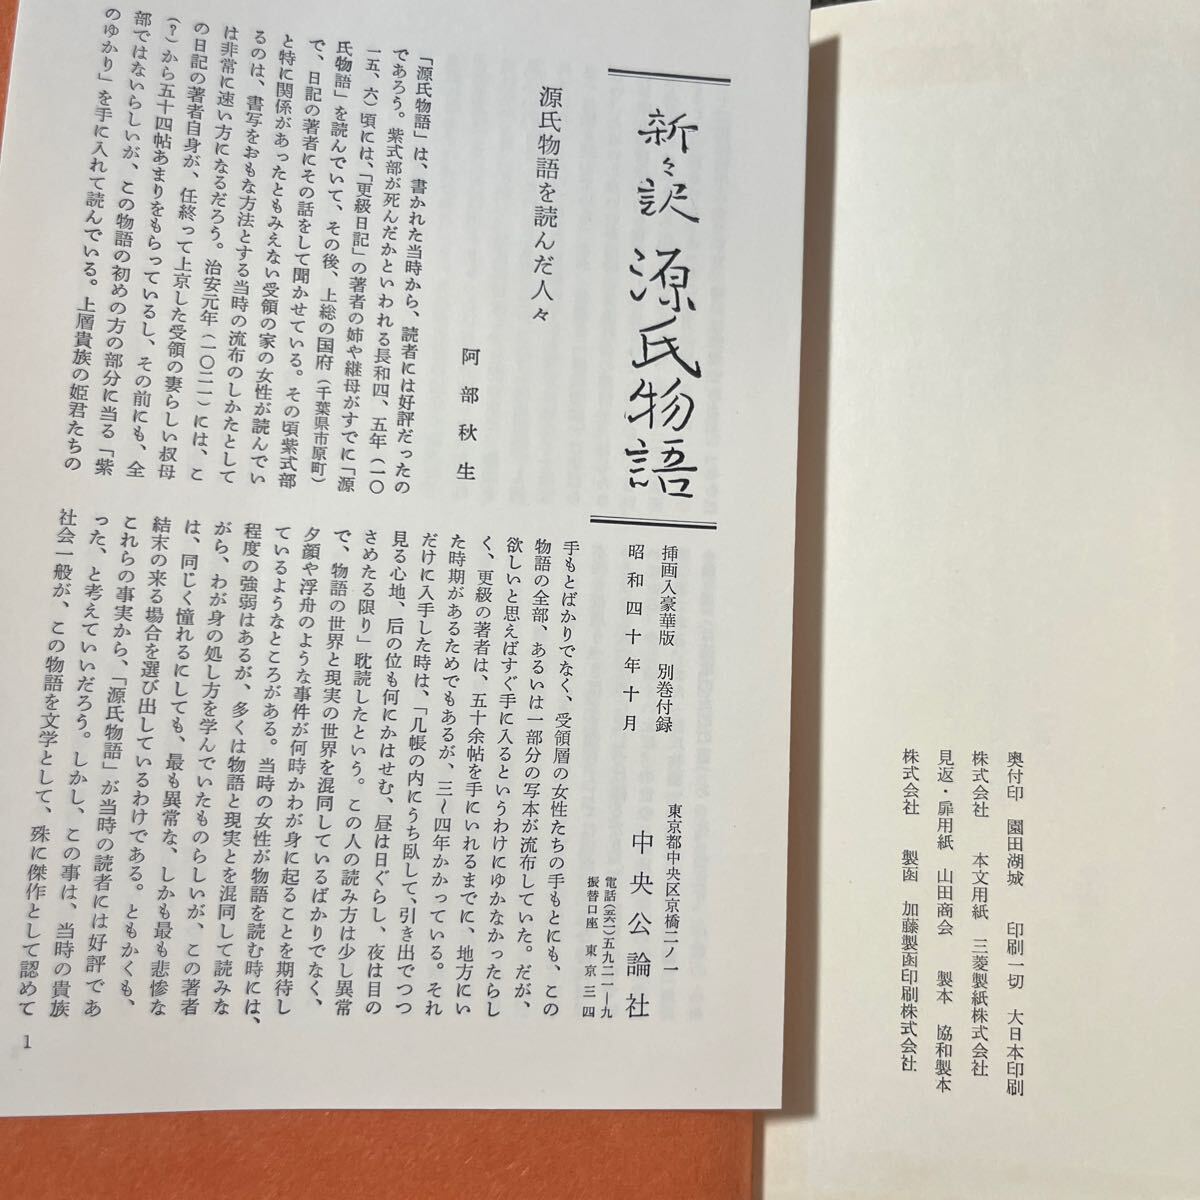 新々訳 源氏物語
挿画入豪華版 別巻付録
昭和四十年十月
東京都中央区京橋二ノ一
中央公論社
電話(五六一)五九二一―九
振替口座 東京三四
源氏物語を読んだ人々
阿部秋生
「源氏物語」は、書かれた当時から、読者には好評だったの
であろう。紫式部が死んだかといわれる長和四、五年(一〇
一五、六)頃には、「更級日記」の著者の姉や継母がすでに「源
氏物語」を読んでいて、その後、上総の国府(千葉県市原町)
で、日記の著者にその話をして聞かせている。その頃紫式部
と特に関係があったともみえない受領の家の女性が読んでい
るのは、書写をおもな方法とする当時の流布のしかたとして
は非常に速い方になるだろう。治安元年(一〇二一)には、こ
の日記の著者自身が、任終って上京した受領の妻らしい叔母
(?)から五十四帖あまりをもらっているし、その前にも、全
部ではないらしいが、この物語の初めの方の部分に当る「紫
のゆかり」を手に入れて読んでいる。上層貴族の姫君たちの
手もとばかりでなく、受領層の女性たちの手もとにも、この
物語の全部、あるいは一部分の写本が流布していた。だが、
欲しいと思えばすぐ手に入るというわけにゆかなかったらし
く、更級の著者は、五十余帖を手にいれるまでに、地方にい
た時期があるためでもあるが、三〜四年かかっている。それ
だけに入手した時は、「几帳の内にうち臥して、引き出でつつ
見る心地、后の位も何にかはせむ、昼は日ぐらし、夜は目の
さめたる限り」耽読したという。この人の読み方は少し異常
で、物語の世界と現実の世界を混同しているばかりでなく、
夕顔や浮舟のような事件が何時かわが身に起ることを期待し
ているようなところがある。当時の女性が物語を読む時には、
程度の強弱はあるが、多くは物語と現実とを混同して読みな
がら、わが身の処し方を学んでいたものらしいが、この著者
は、同じく憧れるにしても、最も異常な、しかも最も悲惨な
結末の来る場合を選び出しているわけである。ともかくも、
これらの事実から、「源氏物語」が当時の読者には好評であ
った、と考えていいだろう。しかし、この事は、当時の貴族
社会一般が、この物語を文学として、殊に傑作として認めて
1
奥付印 園田湖城 印刷一切 大日本印刷
株式会社 本文用紙 三菱製紙株式会社
見返・扉用紙 山田商会 製本 協和製本
株式会社 製函 加藤製函印刷株式会社